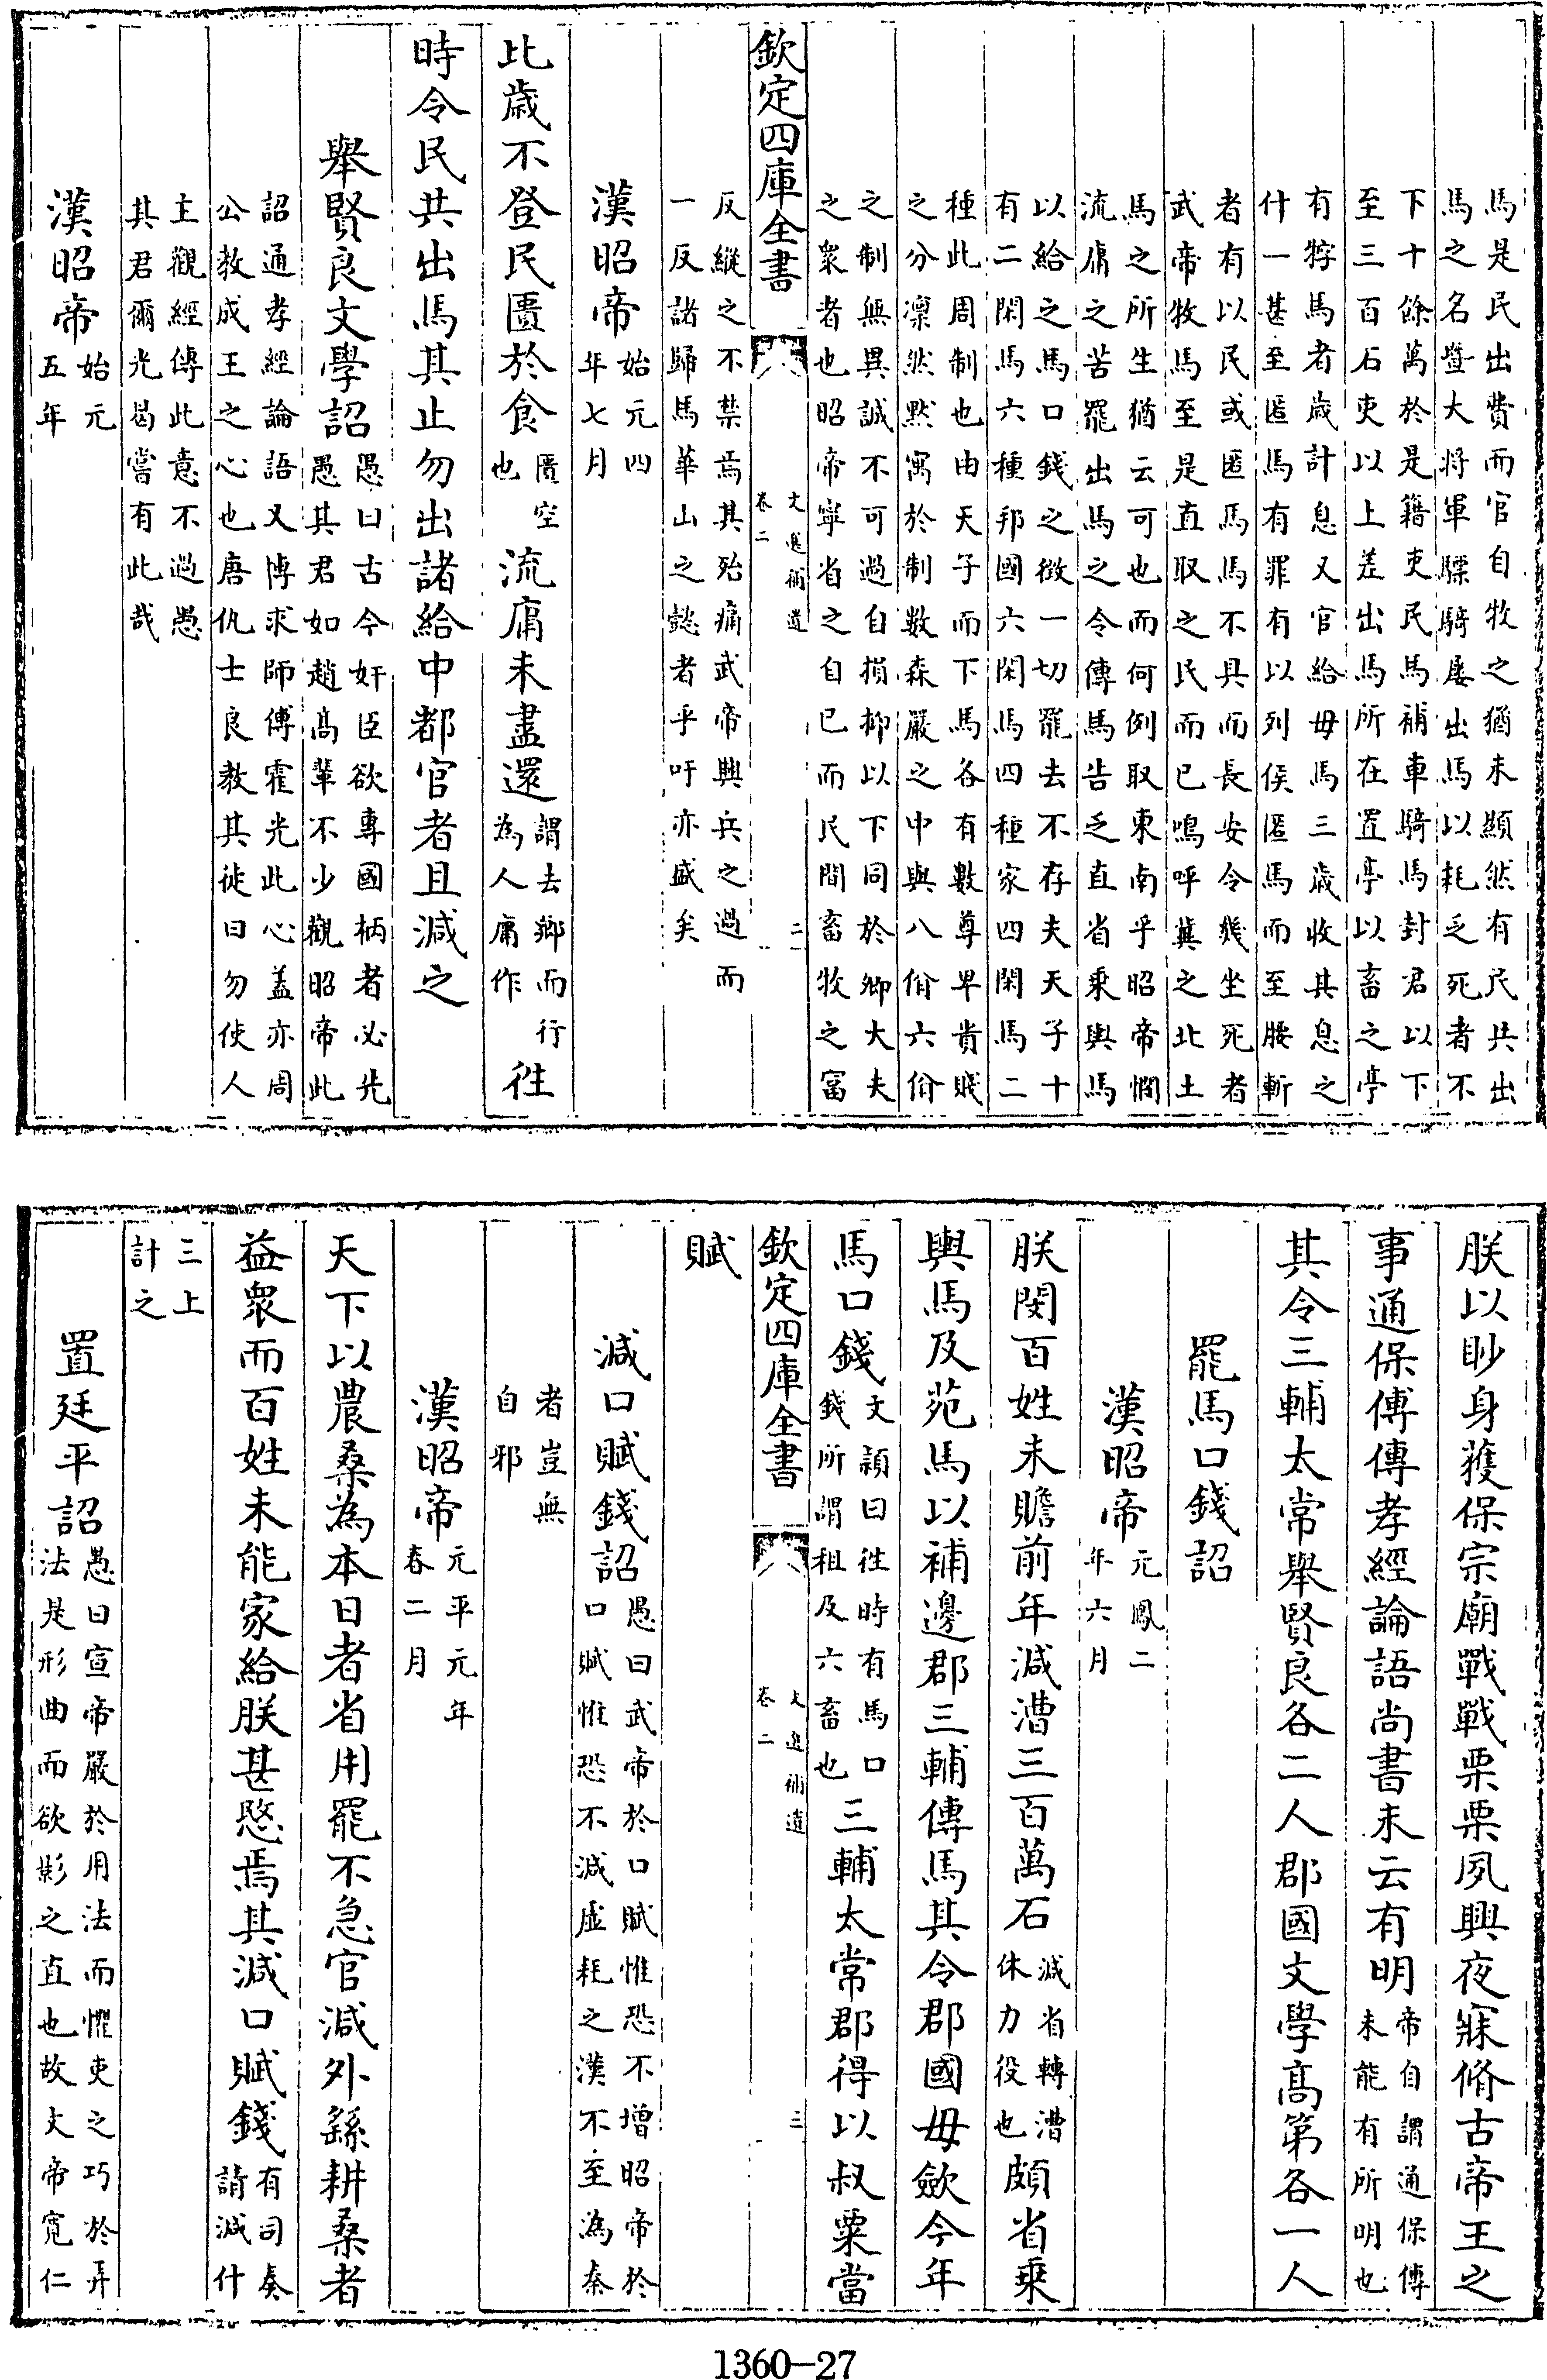 馬是民出費而官自牧之猶未顯然有民共出
馬之名曁大將軍驃騎屡出馬以耗乏死者不
下十餘萬於是籍吏民馬補車騎馬封君以下
至三百石吏以上差出馬所在置亭以畜之亭
有牸馬者歲計息又官給毋馬三歲收其息之
什一甚至匿馬有罪有以列侯匿馬而至腰斬
者有以民或匿馬馬不具而長安令幾坐死者
武帝牧馬至是直取之民而已鳴呼冀之北土
馬之所生猶云可也而何例取東南乎昭帝憫
流庸之苦罷出馬之令傳馬告乏直省乘輿馬
以給之馬口錢之徴一切罷去不存夫天子十
有二閑馬六種邦國六閑馬四種家四閑馬二
種此周制也由天子而下馬各有數尊卑貴賤
之分凛然黙寓於制數森嚴之中與八佾六佾
之制無異誠不可過自損抑以下同於卿大夫
之衆者也昭帝寧省之自已而民間畜牧之富
欽定四庫全書
文選補遺
卷二
二
反縱之不禁焉其殆痛武帝興兵之過而
一反諸歸馬華山之懿者乎吁亦盛矣
漢昭帝始元四
年七月
比歲不登民匱於食匱空
也流庸未盡還謂去鄉而行
為人庸作徃
時令民共出馬其止勿出諸給中都官者且減之
舉賢良文學詔愚曰古今奸臣欲專國柄者必先
愚其君如趙髙輩不少觀昭帝此
詔通孝經論語又博求師傅霍光此心盖亦周
公教成王之心也唐仇士良教其徒曰勿使人
主觀經傳此意不過愚
其君爾光曷嘗有此哉
漢昭帝始元
五年
朕以眇身獲保宗廟戰戰栗栗夙興夜寐脩古帝王之
事通保傅傳孝經論語尚書未云有明帝自謂通保傅
未能有所明也
其令三輔太常舉賢良各二人郡國文學髙第各一人
罷馬口錢詔
漢昭帝元鳳二
年六月
朕閔百姓未贍前年減漕三百萬石減省轉漕
休力役也頗省乗
輿馬及苑馬以補邊郡三輔傳馬其令郡國毋歛今年
馬口錢文頴曰徃時有馬口
錢所謂租及六畜也三輔太常郡得以叔粟當
欽定四庫全書
文選補遺
卷二
三
賦
減口賦錢詔愚曰武帝於口賦惟恐不增昭帝於
口賦惟恐不減虛耗之漢不至為秦
者豈無
自邪
漢昭帝元平元年
春二月
天下以農桑為本日者省用罷不急官減外繇耕桑者
益衆而百姓未能家給朕甚愍焉其減口賦錢有司奏
請減什
三上
計之
置廷平詔愚曰宣帝嚴於用法而懼吏之巧於弄
法是形曲而欲影之直也故文帝寛仁
1360-27